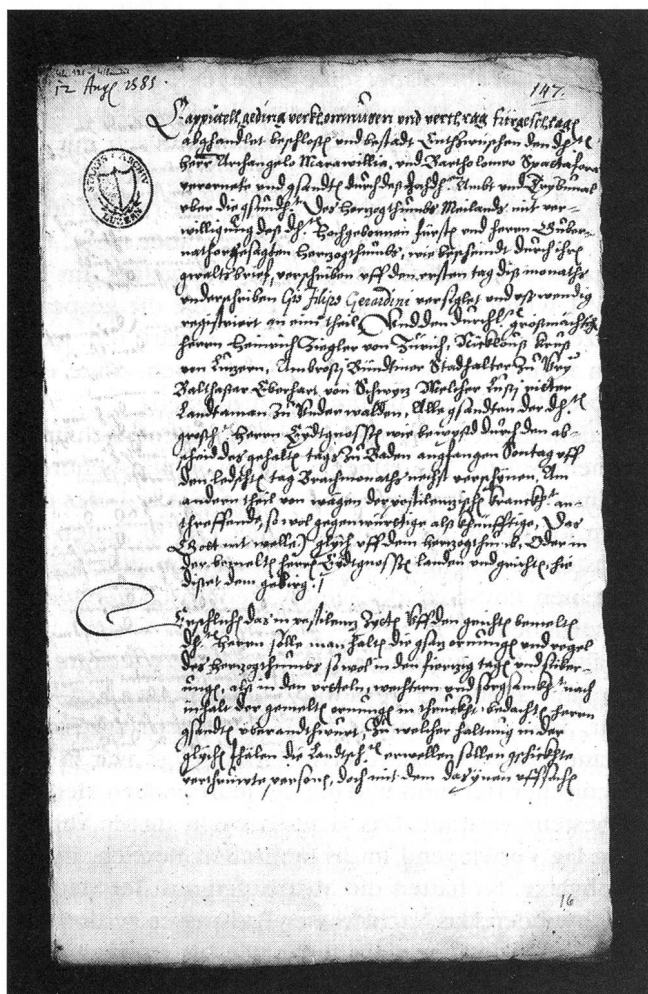 12 Aug 1585
147.
Cappittell geding verkhomnussen und verthrag fürgeschlagen
abghandlet beschlossen und bestädt Entzwischen den
Herr Archangelo Marawillia, und Bartholomeo Spactafora
verornete und gsandte durch das Ambt und Trybunal
über die gsundh. Des Hertzogthumbs Meilandt, mit ver-
willigung deß Hochgebornen fürsten und herrn Guber-
nathor gesagten Hertzogthumbs, wie bescheindt durch ihren
gwalts brief, verschriben uff den ersten tag diß monaths
underschriben Gio Filipo Gerardine versiglet und ußwendig
registriert an eim theil Und den durchl. großmächtigen
herrn Heinrich Ziegler von Zürich, Nicklauß
von Lutzern, Ambrosy Püntiner Stadhalter zu Ury
Balthassar Eberhart von Schwytz Melcher Lussy ritter
Landtaman zu Underwalden, Alle gsandten der
großm. Herrn Eydtgnossen wie bewysd durch den ab-
scheid des gehalten tags zu Baden angfangen Sontag uff
den letschten tag Brachmonaths nechst verschynen, Am
andern theil von wägen der pestilentzischen kranckh. an-
threffende, so wol gegenwürtige als khünfftige, Das
Gott nit welle) glych uff dem Hertzogthumb, Oder in
der bemelten herrn Eydtgnossen landen und grichten, hie
disset dem gebirg.
Erstlichs, das in pestilentz Zyten Uff den
Herrn sölle man halten die gsatz ornungen und regel
des Hertzogthumbs so wol in den fiertzig tagen und
ungen, als in den urtelen, wächtern und sorgsamkh. nach
inhalt der gemelten ornungen in bedachten herrn
gsandten überandthwürt, Zu welcher haltung in der
glychen fhälen die Landtsch. erwellen söllen gschickhte
verthruwte personen, doch mit dem das ynen uffsächen
16
STAATSARCHIV
LUZERN